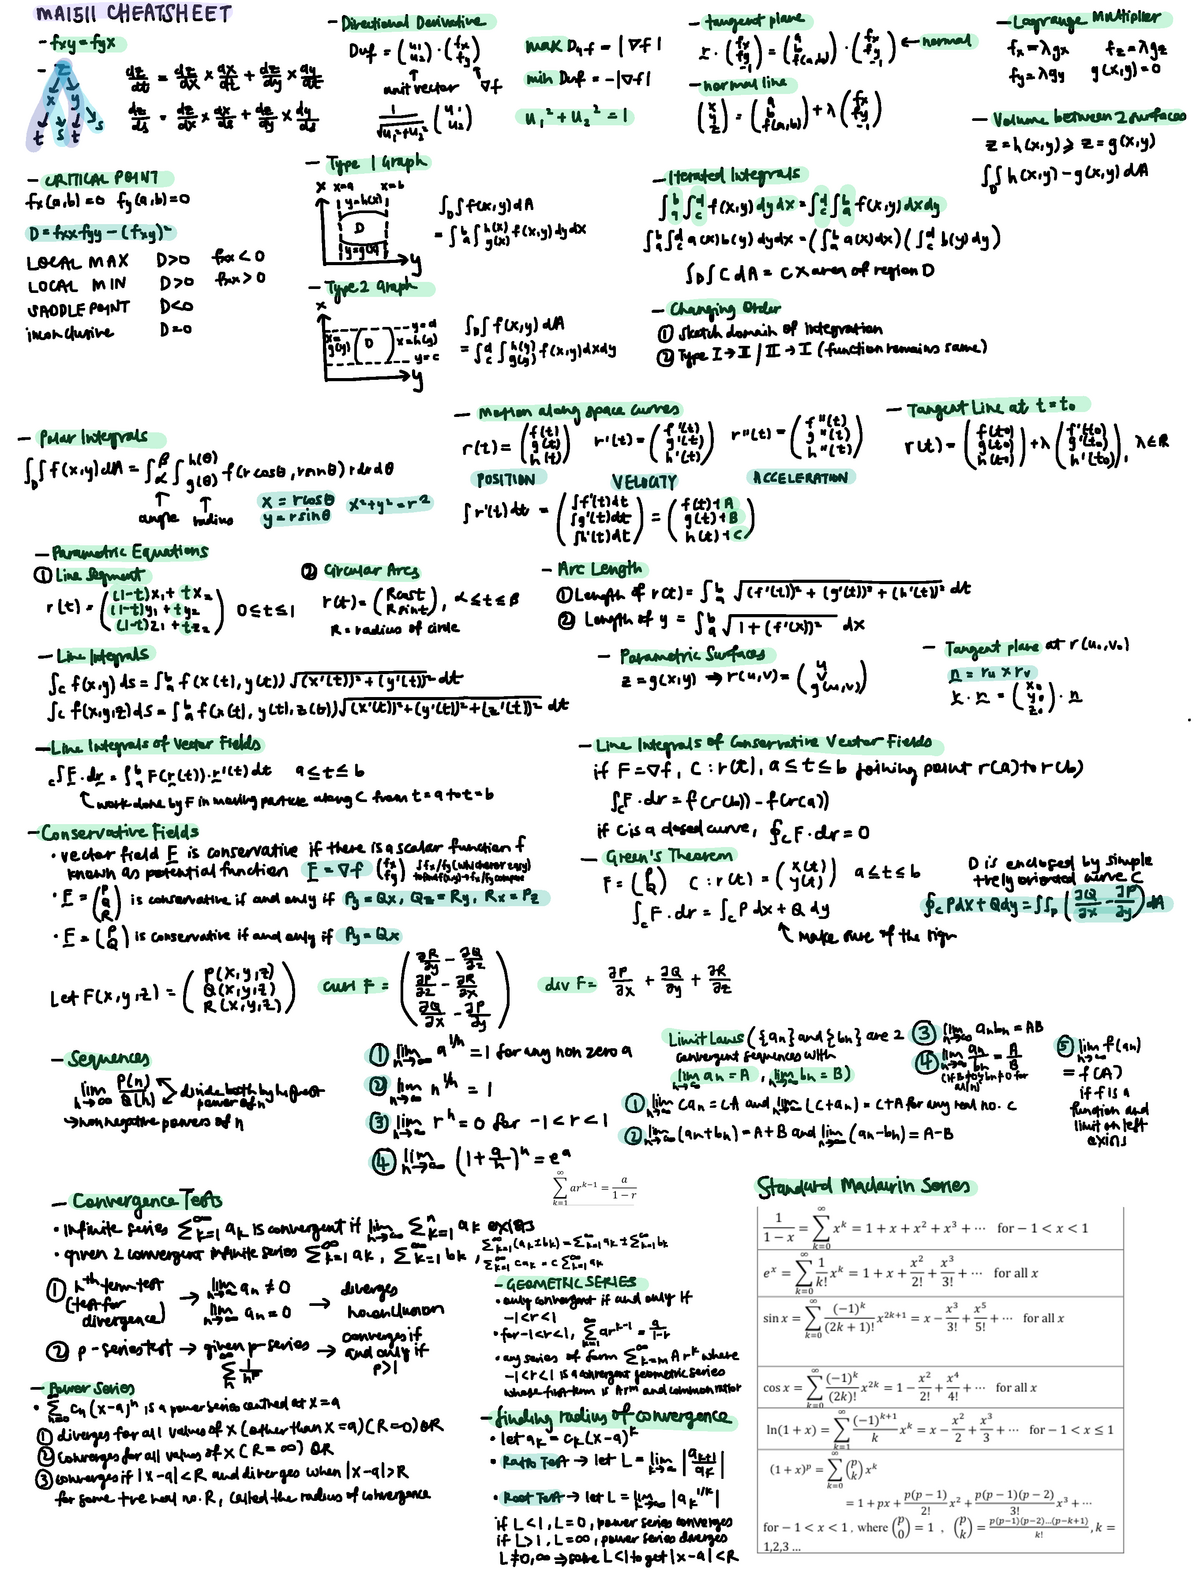 MA1511 CHEATSHEET
- fxy = fyx
- z
x y
t s t s
dz/dt = dz/dx × dx/dt + dz/dy × dy/dt
dz/ds = dz/dx × dx/ds + dz/dy × dy/ds
- Directional Derivative
Duf = (u1 u2) · (fx fy)
unit vector ∇f
1/√(u1²+u2²) (u1 u2)
max Duf = |∇f|
min Duf = -|∇f|
u1² + u2² = 1
- tangent plane
r · (fx fy -1) = (a b f(a,b)) · (fx fy -1) ← normal
- normal line
(x y z) = (a b f(a,b)) + λ (fx fy -1)
- Lagrange Multiplier
fx = λgx fz = λgz
fy = λgy g(x,y) = 0
- Volume between 2 surfaces
z = h(x,y) ≥ z = g(x,y)
∫∫D h(x,y) - g(x,y) dA
- CRITICAL POINT
fx(a,b) = 0 fy(a,b) = 0
D = fxx fyy - (fxy)²
LOCAL MAX D>0 fxx < 0
LOCAL MIN D>0 fxx > 0
SADDLE POINT D<0
inconclusive D=0
- Type 1 Graph
x x=a x=b
y=h(x)
D
y=g(x)
y
∫D∫ f(x,y) dA
= ∫ab ∫g(x)h(x) f(x,y) dy dx
- Type 2 Graph
x
y=d
x=g(y) D x=h(y)
y=c
y
∫D∫ f(x,y) dA
= ∫cd ∫g(y)h(y) f(x,y) dx dy
- Iterated Integrals
∫ab ∫cd f(x,y) dy dx = ∫cd ∫ab f(x,y) dx dy
∫ab ∫cd a(x) b(y) dy dx = (∫ab a(x) dx) (∫cd b(y) dy)
∫D∫ C dA = C × area of region D
- Changing Order
① sketch domain of integration
② Type I → II / II → I (function remains same)
- Polar Integrals
∫∫D f(x,y) dA = ∫αβ ∫g(θ)h(θ) f(r cosθ, r sinθ) r dr dθ
angle radius
x = r cosθ
y = r sinθ
x²+y² = r²
- Motion along space curves
r(t) = (f(t) g(t) h(t)) r'(t) = (f'(t) g'(t) h'(t)) r''(t) = (f''(t) g''(t) h''(t))
POSITION VELOCITY ACCELERATION
∫r'(t) dt = (∫f'(t)dt ∫g'(t)dt ∫h'(t)dt) = (f(t)+A g(t)+B h(t)+C)
- Tangent Line at t = t0
r(t) = (f(t0) g(t0) h(t0)) + λ (f'(t0) g'(t0) h'(t0)), λ∈R
- Parametric Equations
① Line Segment
r(t) = ((1-t)x1 + tx2 (1-t)y1 + ty2 (1-t)z1 + tz2) 0≤t≤1
② Circular Arcs
r(t) = (R cost R sint), α ≤ t ≤ β
R = radius of circle
- Arc Length
① Length of r(t) = ∫ab √((f'(t))² + (g'(t))² + (h'(t))²) dt
② Length of y = ∫ab √(1 + (f'(x))²) dx
- Line Integrals
∫c f(x,y) ds = ∫ab f(x(t), y(t)) √((x'(t))² + (y'(t))²) dt
∫c f(x,y,z) ds = ∫ab f(x(t), y(t), z(t)) √((x'(t))² + (y'(t))² + (z'(t))²) dt
- Parametric Surfaces
z = g(x,y) → r(u,v) = (u v g(u,v))
- Tangent plane at r(u0,v0)
n = ru × rv
r · n = (x0 y0 z0) · n
- Line Integrals of Vector Fields
c∫F · dr = ∫ab F(r(t)) · r'(t) dt a ≤ t ≤ b
work done by F in moving particle along C from t=a to t=b
- Line Integrals of Conservative Vector Fields
if F = ∇f, C : r(t), a ≤ t ≤ b joining point r(a) to r(b)
∫c F · dr = f(r(b)) - f(r(a))
if C is a closed curve, ∮c F · dr = 0
- Conservative Fields
• vector field F is conservative if there is a scalar function f
known as potential function F = ∇f (fx fy)
• F = (P Q R) is conservative if and only if Py = Qx, Qz = Ry, Rx = Pz
• F = (P Q) is conservative if and only if Py = Qx
- Green's Theorem
F = (P Q) C : r(t) = (x(t) y(t)) a ≤ t ≤ b
∫c F · dr = ∫c P dx + Q dy
make sure of the sign
D is enclosed by simple
+vely oriented curve C
∮c P dx + Q dy = ∫∫D (∂Q/∂x - ∂P/∂y) dA
Let F(x,y,z) = (P(x,y,z) Q(x,y,z) R(x,y,z)) curl F = (∂R/∂y - ∂Q/∂z ∂P/∂z - ∂R/∂x ∂Q/∂x - ∂P/∂y) div F = ∂P/∂x + ∂Q/∂y + ∂R/∂z
- Sequences
lim n→∞ P(n)/Q(n) divide both by highest power of n
→ non negative powers of n
① lim n→∞ a^1/n = 1 for any non zero a
② lim n→∞ n^1/n = 1
③ lim n→∞ r^n = 0 for -1 < r < 1
④ lim n→∞ (1 + a/n)^n = e^a
Limit Laws ({an} and {bn} are 2
convergent sequences with
lim n→∞ an = A, lim n→∞ bn = B)
① lim n→∞ can = cA and lim n→∞ (c+an) = c+A for any real no. c
② lim n→∞ (an+bn) = A+B and lim n→∞ (an-bn) = A-B
③ lim n→∞ anbn = AB
④ lim n→∞ an/bn = A/B
⑤ lim n→∞ f(an)
= f(A)
if f is a
function and
limit on left
exists
∑k=1∞ ar^k-1 = a/(1-r)
- Convergence Tests
• infinite series ∑k=1∞ ak is convergent if lim n→∞ ∑k=1n ak exists
• given 2 convergent infinite series ∑k=1∞ ak, ∑k=1∞ bk, ∑k=1∞ (ak±bk) = ∑k=1∞ ak ± ∑k=1∞ bk
∑k=1∞ cak = c∑k=1∞ ak
① nth term test (test for divergence) → lim n→∞ an ≠ 0 → diverges
lim n→∞ an = 0 no conclusion
② p-series test → given p-series ∑n 1/n^p → converges if and only if p>1
- GEOMETRIC SERIES
• only convergent if and only if
-1<r<1
• for -1<r<1, ∑k=1∞ ar^k-1 = a/1-r
• any series of form ∑k=m∞ Ar^k where
-1<r<1 is a convergent geometric series
whose first term is Ar^m and common ratio r
- Power Series
• ∑n=0∞ cn(x-a)^n is a power series centred at x=a
① diverges for all values of x (other than x=a) (R=0) OR
② converges for all values of x (R=∞) OR
③ converges if |x-a|<R and diverges when |x-a|>R
for some +ve real no. R, called the radius of convergence
- finding radius of convergence
• let ak = ck(x-a)^k
• Ratio Test → let L = lim k→∞ |ak+1/ak|
• Root Test → let L = lim k→∞ |ak^1/k|
if L<1, L=0, power series converges
if L>1, L=∞, power series diverges
L≠0,∞ ⇒ solve L<1 to get |x-a|<R
Standard Maclaurin Series
1/(1-x) = ∑k=0∞ x^k = 1 + x + x² + x³ + ⋯ for −1 < x < 1
e^x = ∑k=0∞ 1/k! x^k = 1 + x + x²/2! + x³/3! + ⋯ for all x
sin x = ∑k=0∞ (−1)^k/(2k+1)! x^2k+1 = x − x³/3! + x⁵/5! + ⋯ for all x
cos x = ∑k=0∞ (−1)^k/(2k)! x^2k = 1 − x²/2! + x⁴/4! + ⋯ for all x
ln(1+x) = ∑k=1∞ (−1)^k+1/k x^k = x − x²/2 + x³/3 + ⋯ for −1 < x ≤ 1
(1+x)^p = ∑k=0∞ (p k) x^k
= 1 + px + p(p−1)/2! x² + p(p−1)(p−2)/3! x³ + ⋯
for −1 < x < 1, where (p 0) = 1, (p k) = p(p−1)(p−2)…(p−k+1)/k!, k =
1,2,3 …